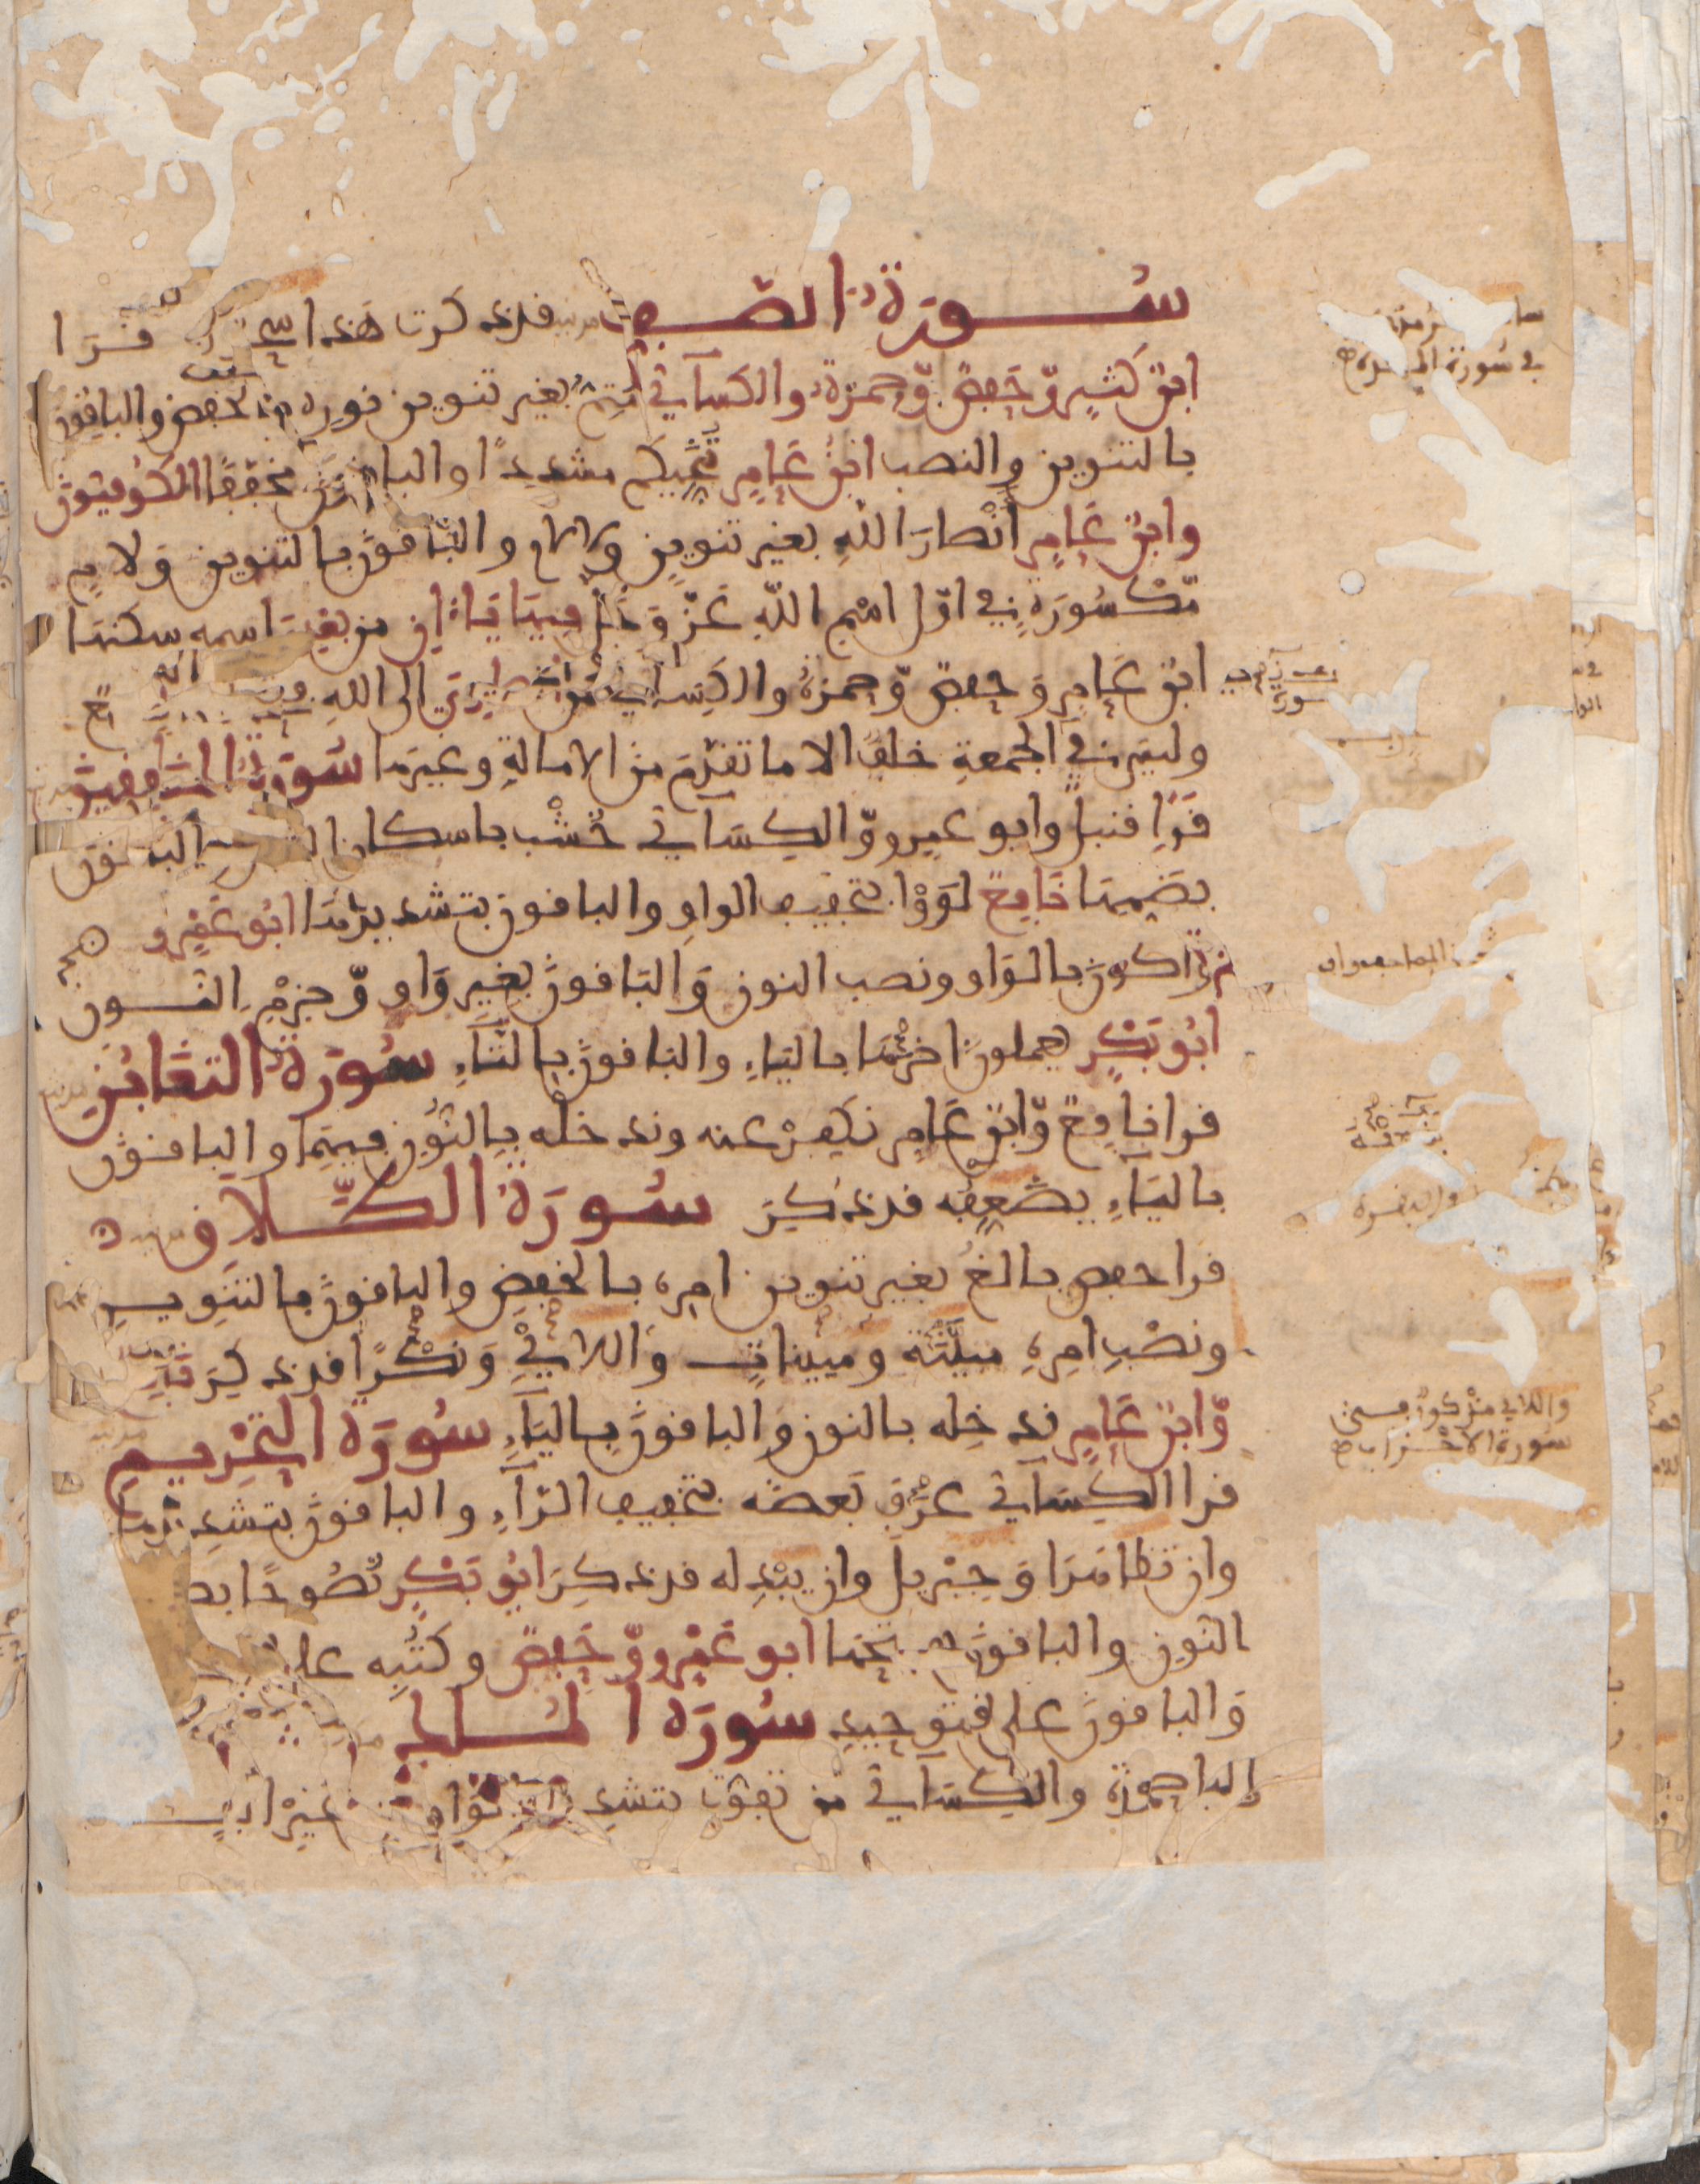 سورة الصف قد ذكرت هذا سحر قرا
ابن كثير وحفص وحمزة والكسآئي متم بغير تنوين نوره بالخفض والباقون
بالتنوين والنصب ابن عامر تنجيكم مشددا والباقون مخففا الكوفيون
وابن عامر أنصار الله بغير تنوين ولا لام والباقون بالتنوين ولام
مكسورة في اول اسم الله عز وجل فيها ياءان من بعدي اسمه سكنها
ابن عامر وحفص وحمزة والكسائي من انصاري الى الله
وليس في الجمعة خلف الا ما تقدم من الامالة وغيرها سورة المنافقين
قرا قنبل وابو عمرو والكسآئي خشب باسكان الشين الباقون
بضمها نافع لووا بتخفيف الواو والباقون بتشديدها ابو عمرو
واكون بالواو ونصب النون والباقون بغير واو وجزم النون
ابو بكر يعملون اخرها بالياء والباقون بالتاء سورة التغابن
قرا نافع وابن عامر نكفر عنه وندخله بالنون فيهما والباقون
بالياء يضعفه قد ذكر سورة الطلاق
قرا حفص بالغ بغير تنوين امره بالخفض والباقون بالتنوين
ونصب امره مبينة ومبينات واللائي ونكرا قد ذكر نافع
وابن عامر ندخله بالنون والباقون بالياء سورة التحريم
قرا الكسآئي عرف بعضه بتخفيف الرآء والباقون بتشديدها
وان تظاهرا وجبريل وان يبدله قد ذكر ابو بكر نصوحا بضم
النون والباقون بفتحها ابو عمرو وحفص وكتبه على
والباقون على التوحيد سورة الملك
قرا حمزة والكسآئي من تفوت بتشديد الواو من غير الف
في سورة المائدة
واللائي مذكور في
سورة الاحزاب